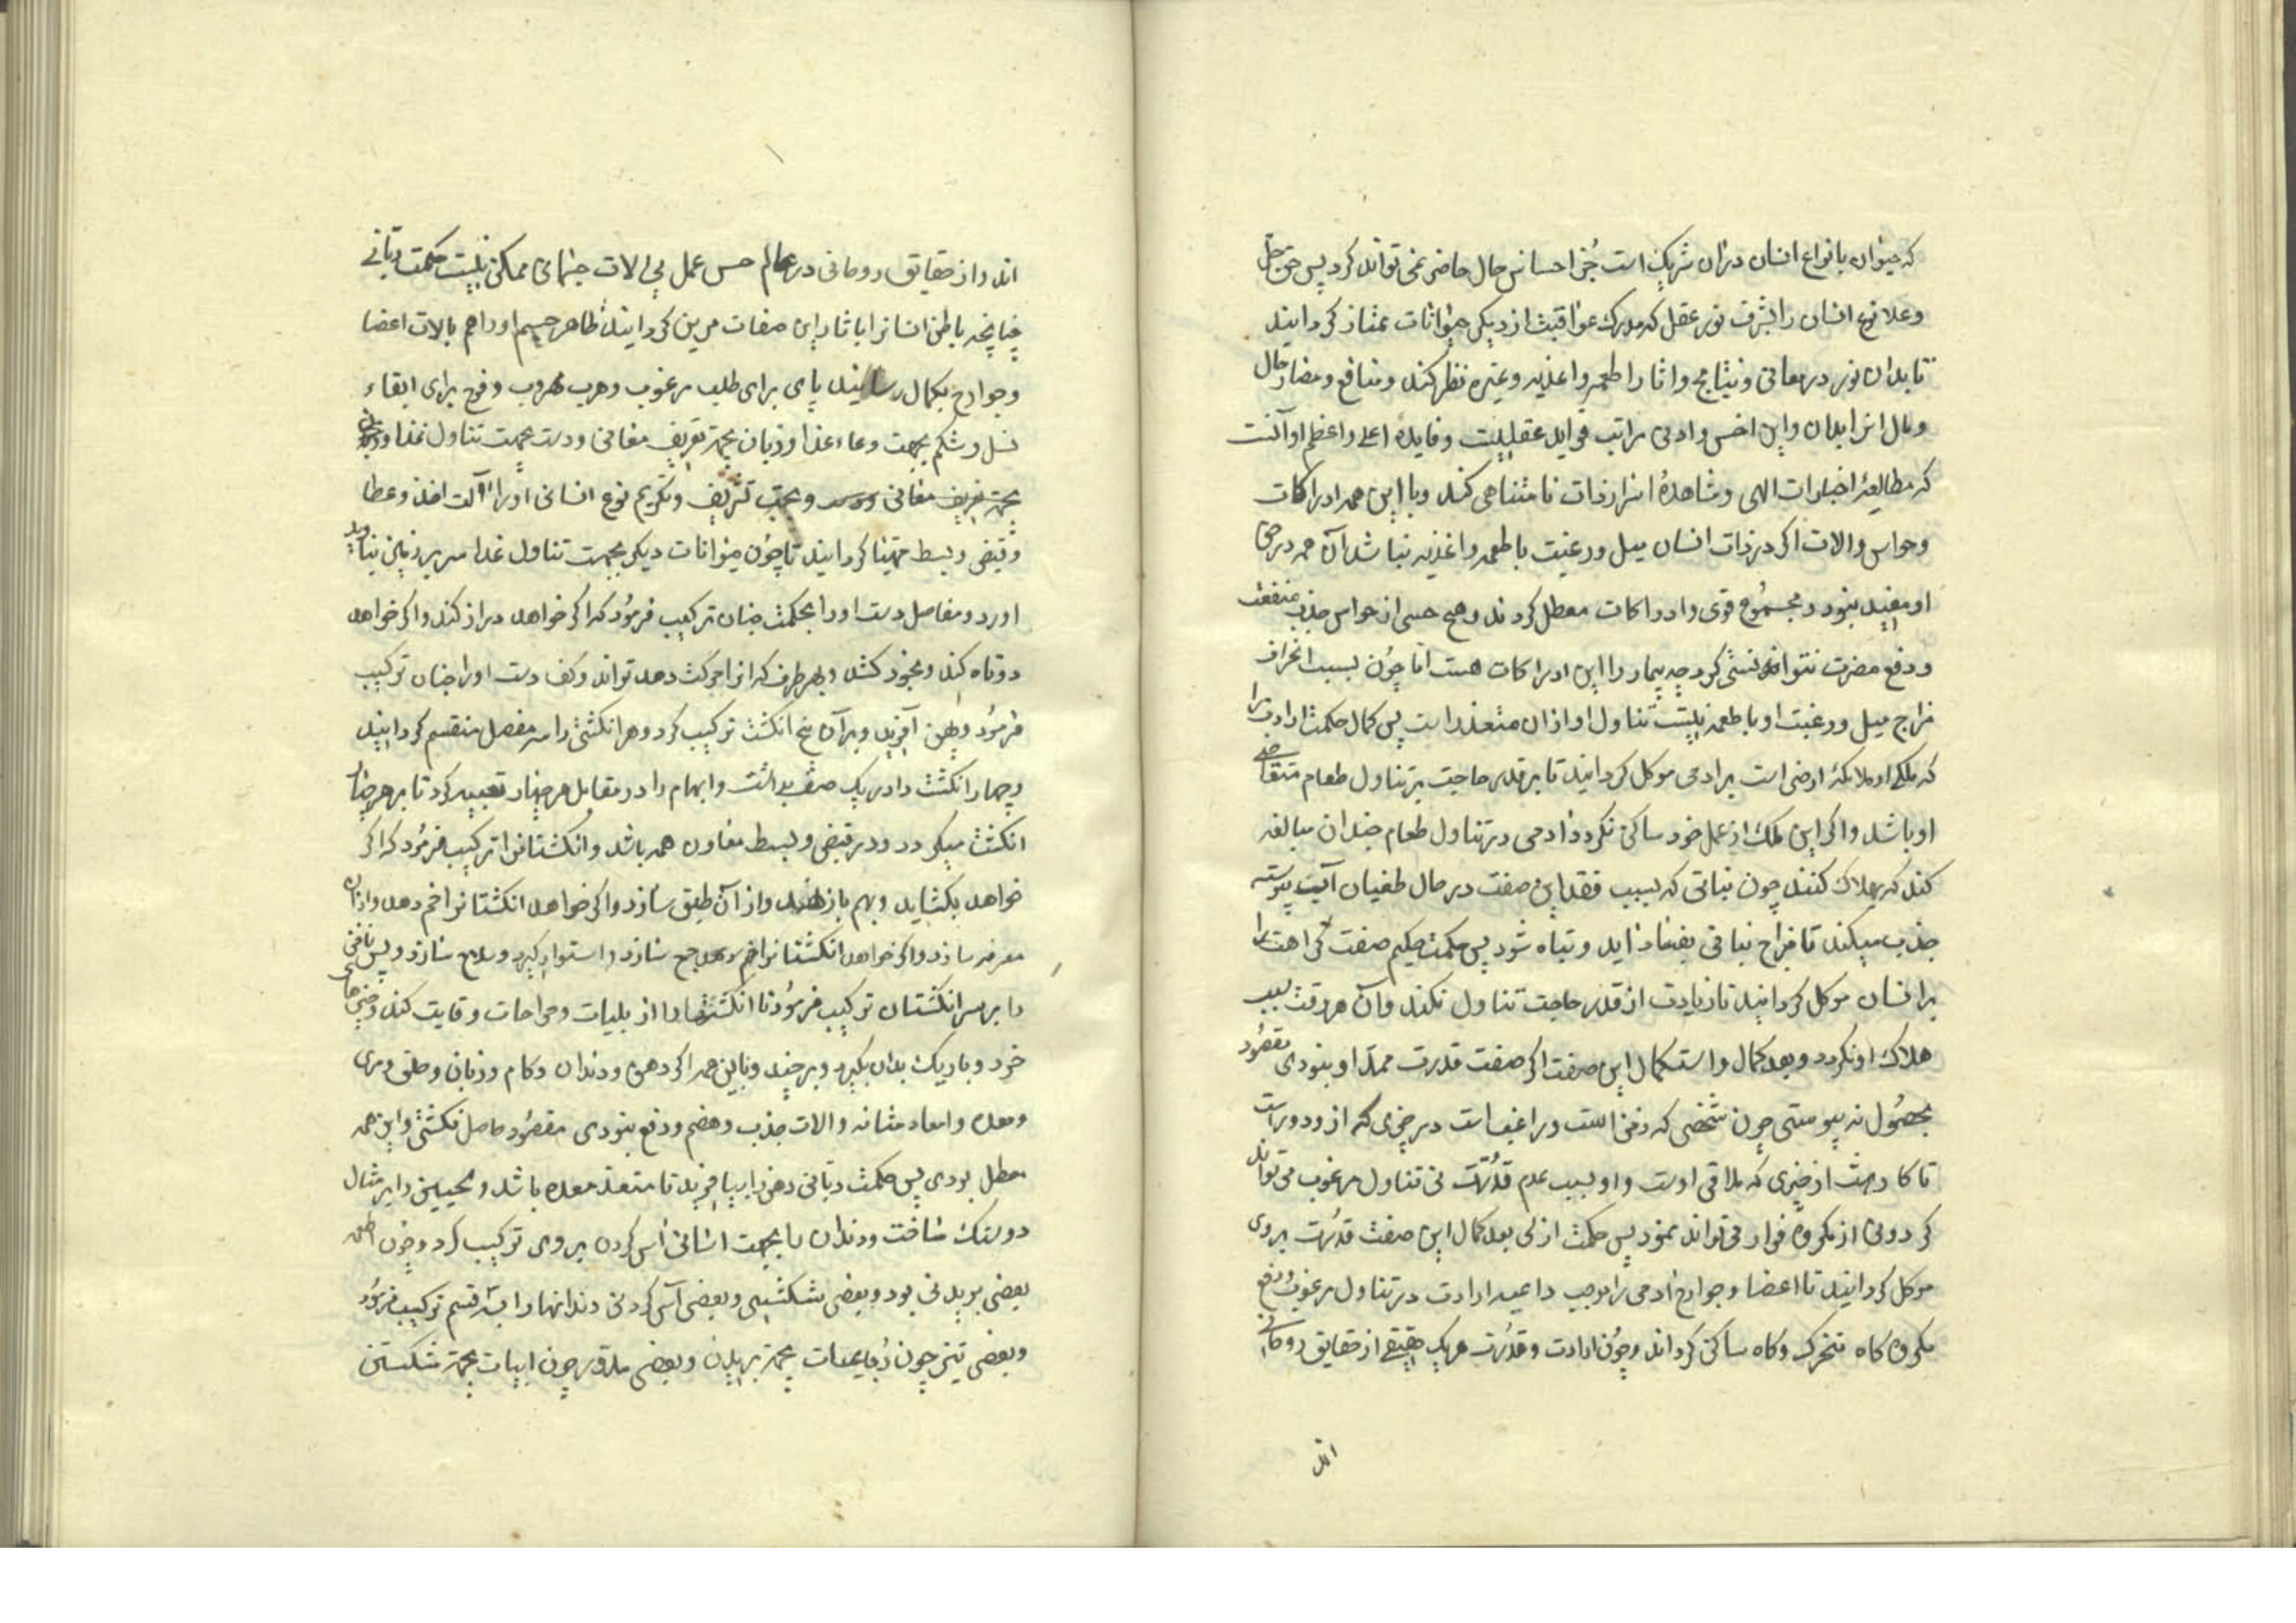 که حیوان با نواع انسان دران شریک است جز احساس حال حاضر نمی تواند کرد پس حق جل
وعلا نوع انسان را بشرف نور عقل که مدرک عواقبت از دیکر حیوانات ممتاز کردانید
تا بدان نور در معانی و نتایج واثار اطعمه واغذیه وغیره نظر کند ومنافع ومضار حال
ومال از ابدان واین اخس وادنی مراتب فواید عقلیست وفایدهٔ اعلی واعظم او آنست
که مطالعهٔ اخبارات الهی ومشاهدهٔ اسرار ذات نامتناهی کند وبا این همه ادراکات
وحواس والات اکر در ذات انسان میل ورغبت باطعمه واغذیه نباشد آن همه در حق
او مفید نبود ومجموع قوی وادراکات معطل کردند وهیچ حسی از حواس جذب منفعت
ودفع مضرت نتواند کرد چه بیمار را این ادراکات هست اما چون بسبب انحراف
مزاج میل ورغبت او با طعمه نیست تناول او ازان متعذر است پس کمال حکمت ارادت را
که ملکی از ملائکهٔ ارضی است بر ادمی موکل کردانید تا بر قدر حاجت بر تناول طعام متقاضی
او باشد واکر این ملک از عمل خود ساکن نکردد ادمی در تناول طعام چندان مبالغه
کند که بهلاک کشد چون نباتی که بسبب فقد این صفت در حال طغیان آب پیوسته
جذب میکند تا مزاج نباتی بفساد اید وتباه شود پس حکمت حکیم صفت کراهت را
بر انسان موکل کردانید تا زیادت از قدر حاجت تناول نکند وآن هر وقت سبب
هلاک او نکردد وبعد کمال واستکمال این صفت اکر صفت قدرت ممد او نبودی مقصود
بحصول نه پیوستی چون شخصی که زمن است وراغب است در چیزی که از و دور است
تا کارهست از چیزی که ملاقی اوست واو بسبب عدم قدرت نی تناول مرغوب می تواند
کرد ونی از مکروه فرار می تواند نمود پس حکمت ازلی بعد کمال این صفت قدرت بر وی
موکل کردانید تا اعضا وجوارح ادمی را بموجب داعیه ارادت در تناول مرغوب ودفع
مکروه کاه متحرک وکاه ساکن کرداند وچون ارادت وقدرت هر یک حقیقتی از حقایق روحانی
اند
اند واز حقایق روحانی در عالم حس عمل بی الات جسمانی ممکن نیست حکمت ربانی
چنانچه باطن انسانرا باثار این صفات مزین کردانید ظاهر جسم او را هم بالات اعضا
وجوارح بکمال رسانید پای برای طلب مرغوب وهرب مهروب وفرج برای ابقاء
نسل وشکم بجهت وعاء غذا وزبان بجهة تعریف معانی ودست بجهت تناول غذا
بجهة تعریف معانی وبجهت تشریف وتکریم نوع انسانی او را آلت اخذ وعطا
وقبض وبسط مهیا کردانید تا چون حیوانات دیکر بجهت تناول غذا سر بر زمین نباید
اورد ومفاصل دست او را بحکمت چنان ترکیب فرمود که اکر خواهد دراز کند واکر خواهد
دوتاه کند وبخود کشد وبهر طرف که انرا حرکت دهد تواند وکف دست او را چنان ترکیب
فرمود وپهن آفرید وبرآن پنج انکشت ترکیب کرد وهر انکشتی را سه مفصل منقسم کردانید
وچهار انکشت را در یک صف بداشت وابهام را در مقابل هر چهار تعبیه کرد تا بر هر چهار
انکشت میکردد ودر قبض وبسط معاون همه باشد وانکشتانرا ترکیب فرمود که اکر
خواهد بکشاید وبهم باز نهد واز آن طبق سازد واکر خواهد انکشتانرا خم دهد وازان
مغرفه سازد واکر خواهد انکشتانرا جمع سازد واستوار کیرد وسلاح سازد وپس ناخن
را بر سر انکشتان ترکیب فرمود تا انکشتها را از بلیات وجراحات وقایت کند وچیزهای
خرد وباریک بدان بکیرد وبر چیند وباین همه اکر دهن ودندان وکام وزبان وحلق ومری
ومعده وامعاء مثانه والات جذب وهضم ودفع نبودی مقصود حاصل نکشتی واین همه
معطل بودی پس حکمت ربانی دهن را بیافرید تا منفذ معده باشد ولحیین را بر مثال
دو سنک ساخت ودندان را بجهت اسانی آس کردن بر وی ترکیب کرد وچون اطعمه
بعضی بریدنی بود وبعضی شکستنی وبعضی آس کردنی دندانها را به سه قسم ترکیب فرمود
وبعضی تیز چون رباعیات بجهة بریدن وبعضی مدور چون انیاب بجهة شکستن